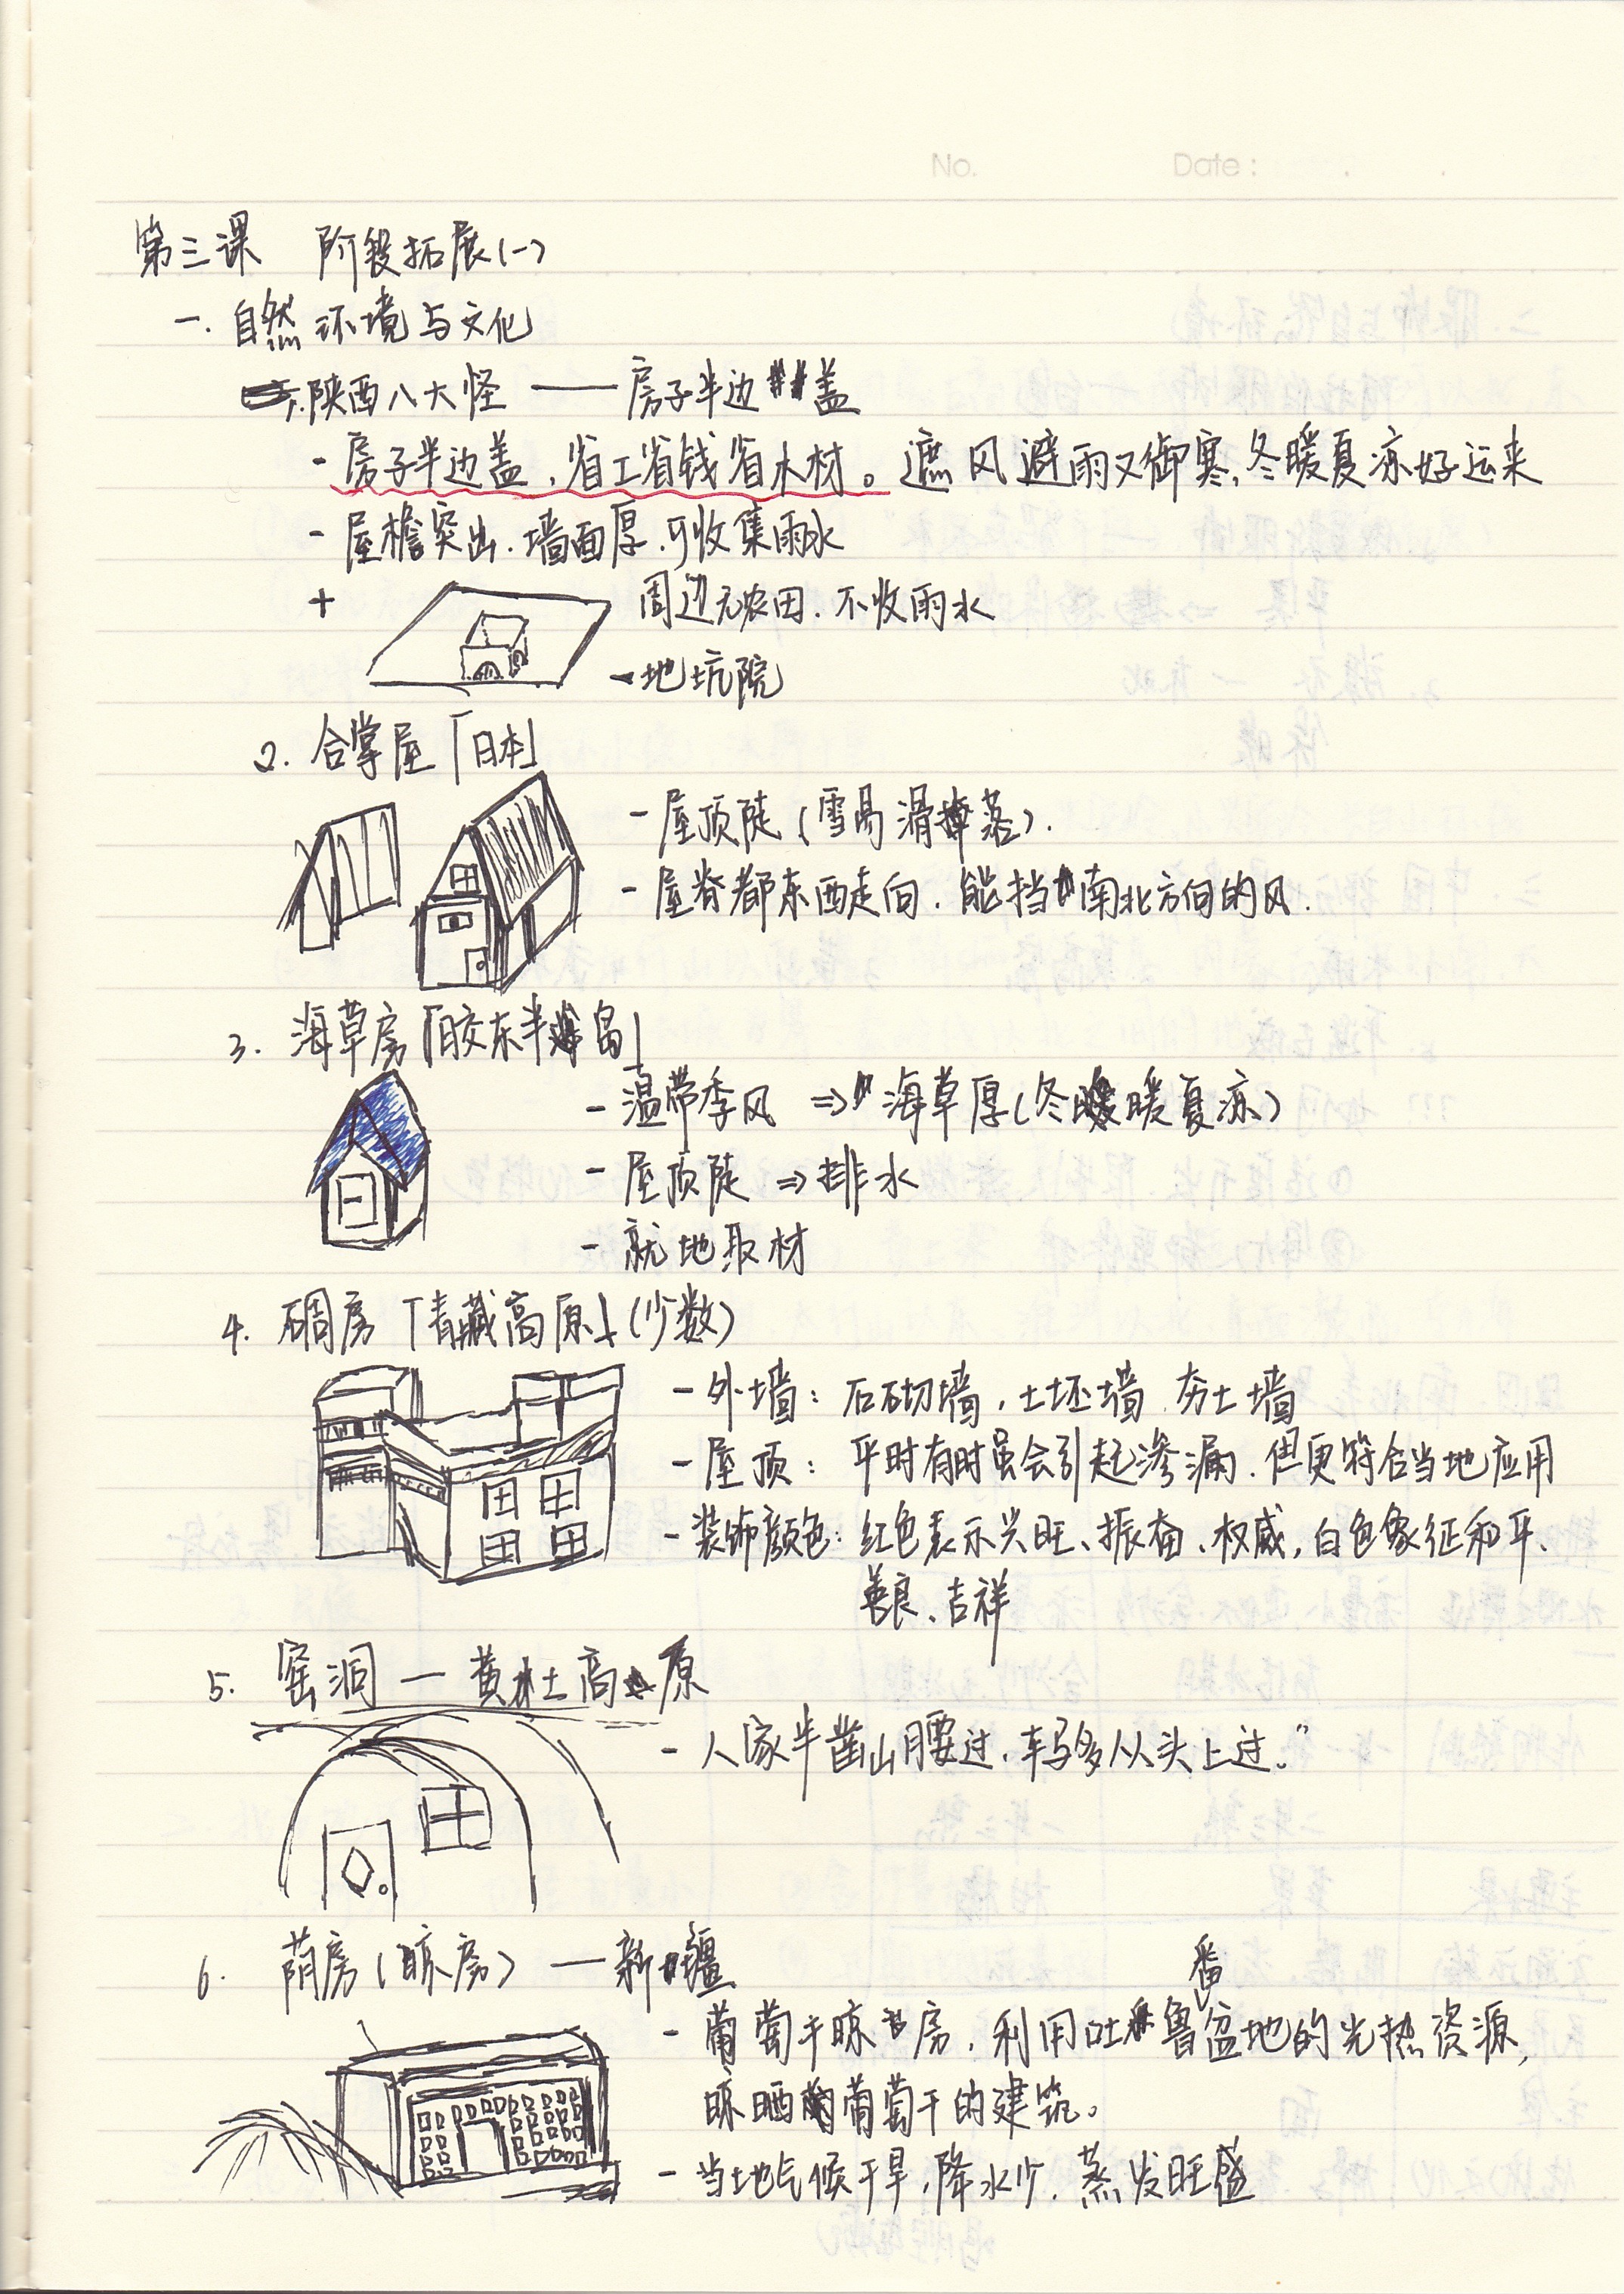 No.    Date :    .    .
第三课 阶段拓展(一)
一. 自然环境与文化
1. 陕西八大怪 —— 房子半边盖
- 房子半边盖, 省工省钱省木材。遮风避雨又御寒, 冬暖夏凉好运来
- 屋檐突出. 墙面厚. 可收集雨水
+ 周边无农田. 不收雨水
- 地坑院
2. 合掌屋「日本」
- 屋顶陡 (雪易滑落).
- 屋脊都东西走向. 能挡南北方向的风.
3. 海草房「胶东半岛」
- 温带季风 ⇒ 海草厚(冬暖夏凉)
- 屋顶陡 ⇒ 排水
- 就地取材
4. 碉房「青藏高原」(少数)
- 外墙: 石砌墙, 土坯墙. 夯土墙
- 屋顶: 平时有时虽会引起渗漏. 但更符合当地应用
- 装饰颜色: 红色表示兴旺、振奋、权威, 白色象征和平、
善良、吉祥
5. 窑洞 — 黄土高原
- 人家半凿山腰过. 车马多从头上过.”
6. 荫房 (晾房) — 新疆
- 葡萄干晾房, 利用吐番鲁盆地的光热资源,
晾晒葡萄干的建筑。
- 当地气候干旱, 降水少. 蒸发旺盛